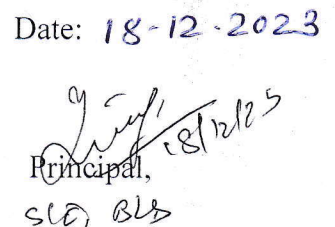 Date: 18-12-2023
18/12/23
Principal,